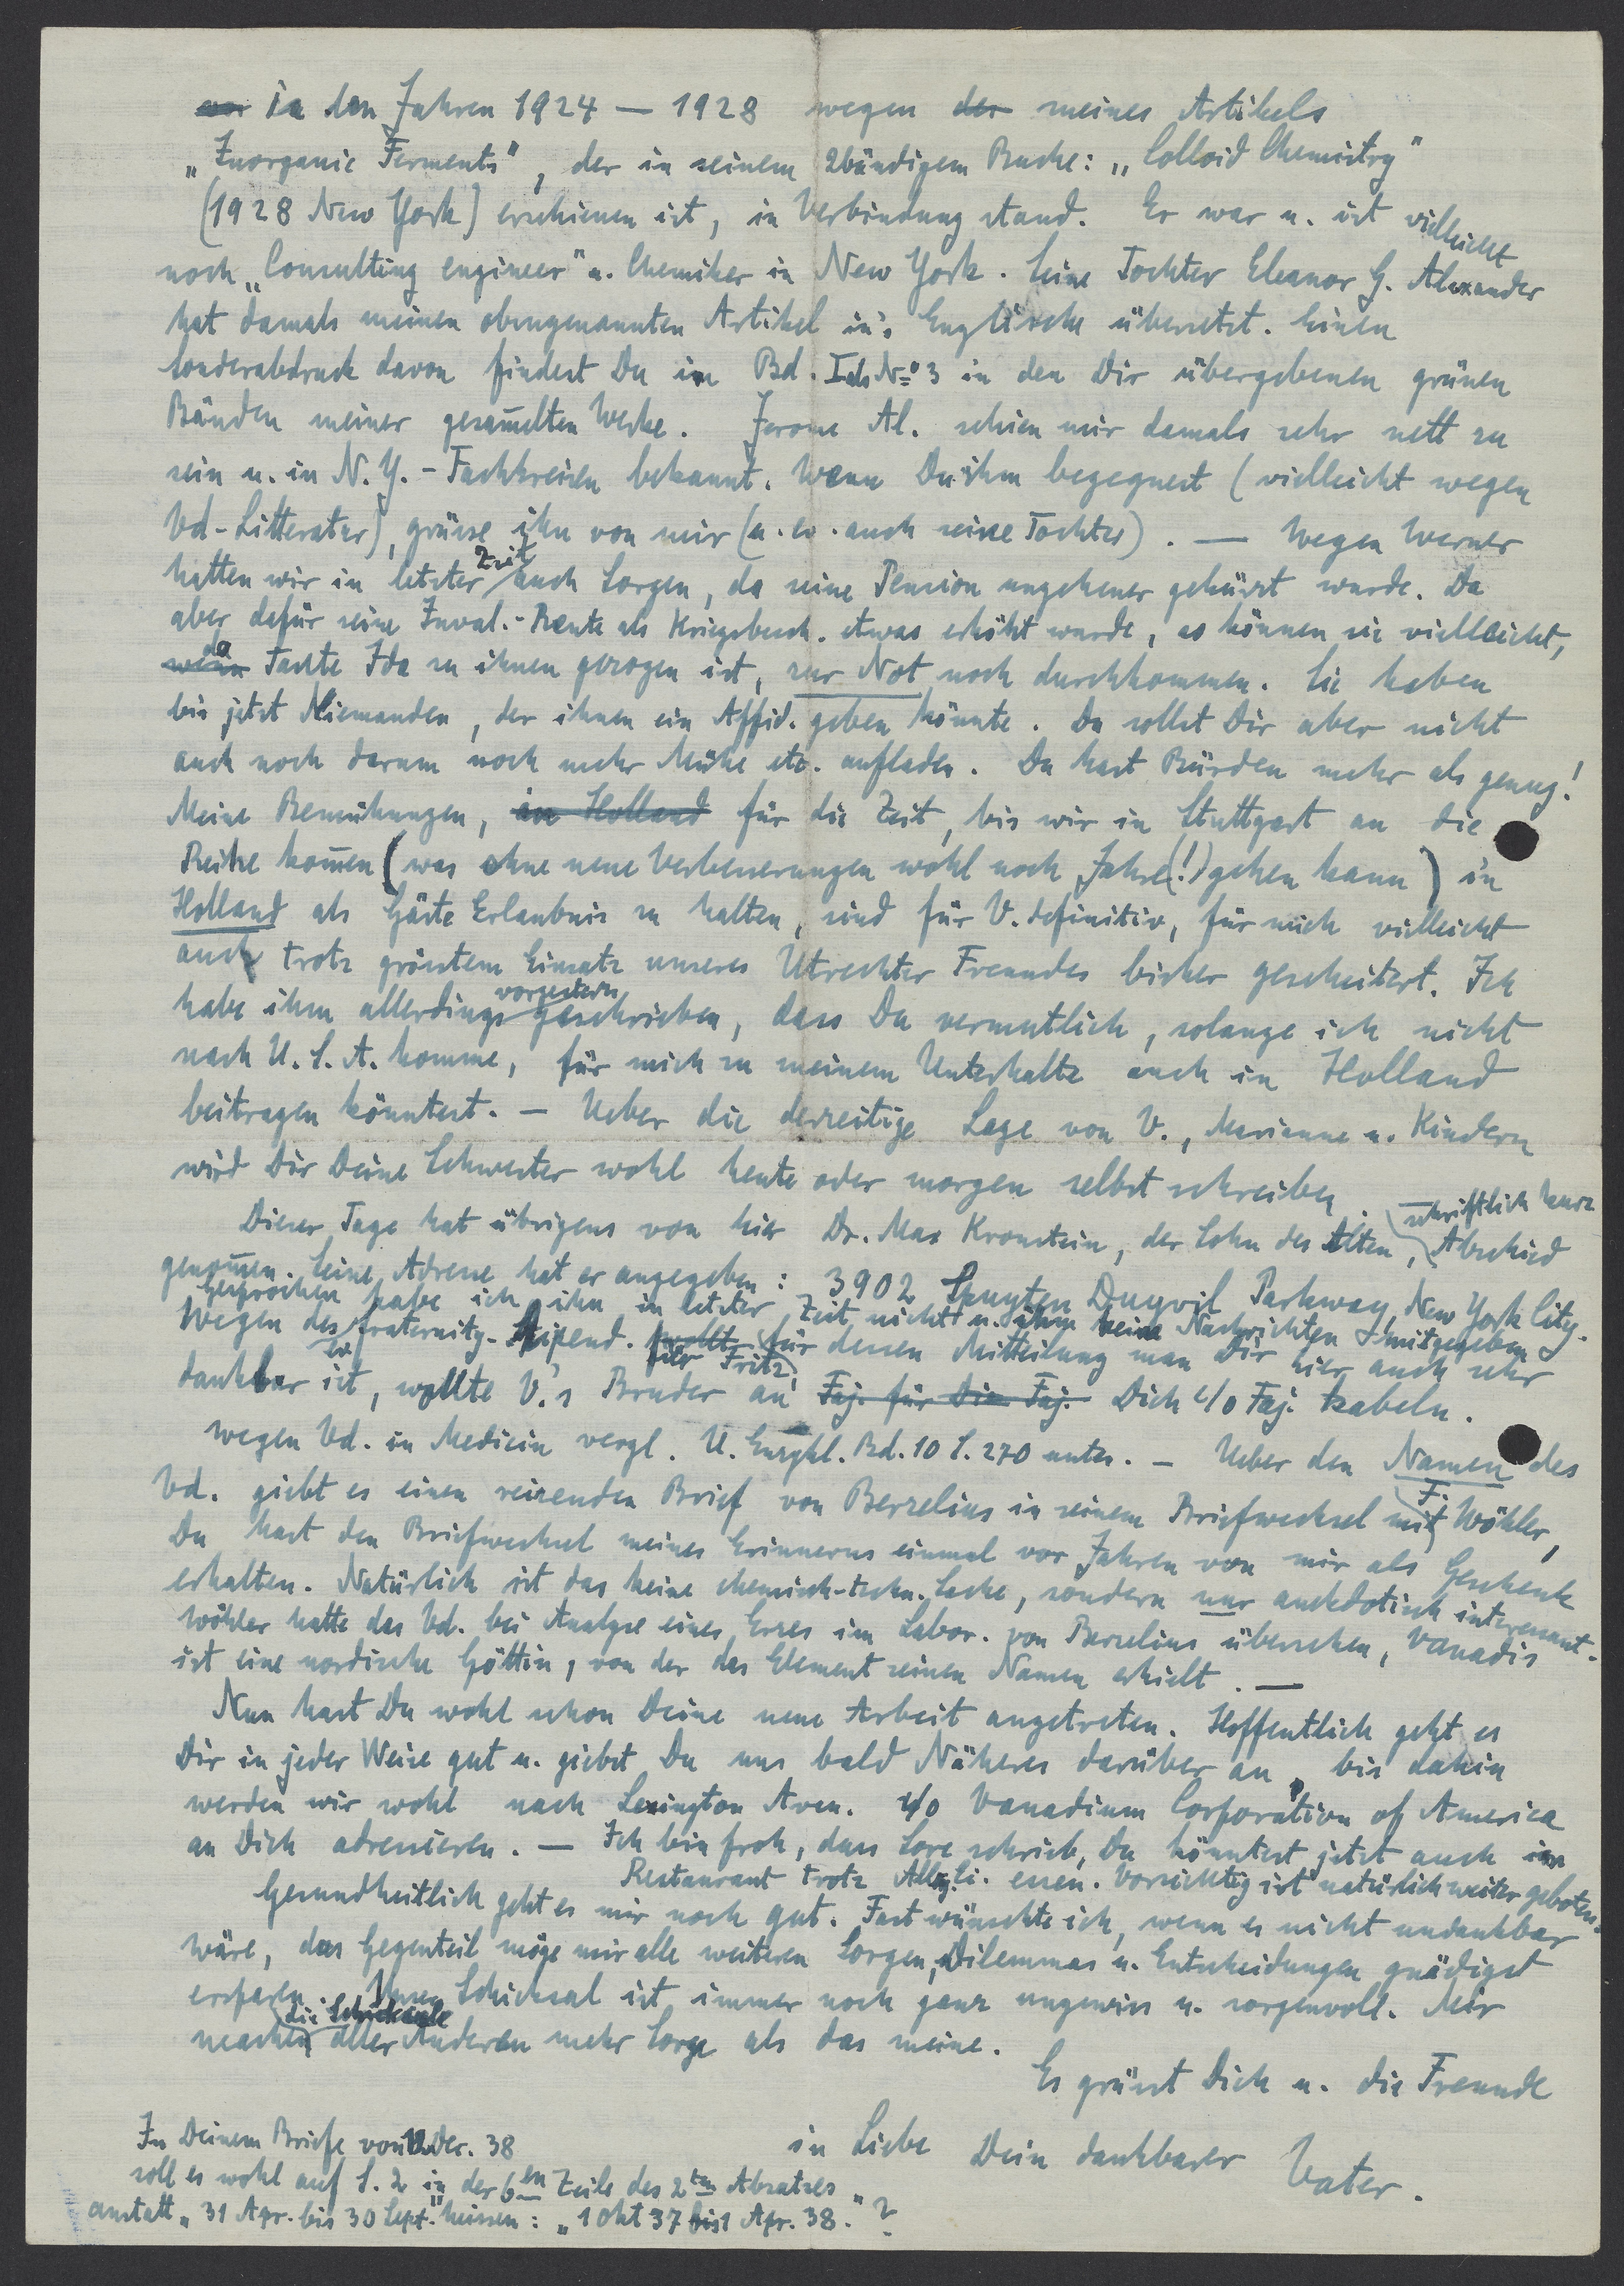 vor in den Jahren 1924 — 1928 wegen der meines Artikels
„Inorganic Ferments", der in seinem 2bändigem Buche: „Colloid Chemistry"
(1928 New York) erschienen ist, in Verbindung stand. Er war u. ist vielleicht
noch „Consulting engineer" u. Chemiker in New York. Seine Tochter Eleanor G. Alexander
hat damals meinen obengenannten Artikel in's Englische übersetzt. Einen
Sonderabdruck davon findest Du im Bd. I als No 3 in den Dir übergebenen grünen
Bänden meiner gesam̅elten Werke. Jerome Al. schien mir damals sehr nett zu
sein u. in N.Y.-Fachkreisen bekannt. Wenn Du ihm begegnest (vielleicht wegen
Vd-Litteratur), grüsse ihn von mir (u. ev. auch seine Tochter). — Wegen Werner
hatten wir in letzter Zeit auch Sorgen, da seine Pension ungeheuer gekürzt wurde. Da
aber dafür seine Inval.-Rente als Kriegsbesch. etwas erhöht wurde, so können sie vielleicht,
wenn da Tante Ida zu ihnen gezogen ist, zur Not noch durchkommen. Sie haben
bis jetzt Niemanden, der ihnen ein Affid. geben könnte. Du sollst Dir aber nicht
auch noch darum noch mehr Mühe etc. aufladen. Du hast Bürden mehr als genug!
Meine Bemühungen, in Holland für die Zeit, bis wir in Stuttgart an die
Reihe kom̅en (was ohne neue Verbesserungen wohl noch Jahre(!) gehen kann) in
Holland als Gäste Erlaubnis zu halten, sind für V. definitiv, für mich vielleicht
auch trotz grösstem Einsatz unseres Utrechter Freundes bisher gescheitert. Ich
habe ihm allerdings vorgestern geschrieben, dass Du vermutlich, solange ich nicht
nach U.S.A. komme, für mich zu meinem Unterhalte auch in Holland
beitragen könntest. — Ueber die derzeitige Lage von V., Marianne u. Kindern
wird Dir Deine Schwester wohl heute oder morgen selbst schreiben.
Dieser Tage hat übrigens von hier Dr. Max Kronstein, der Sohn des Alten, schriftlich kurz Abschied
genom̅en. Seine Adresse hat er angegeben: 3902 Spuyten Duyvil Parkway, New York City.
Gesprochen habe ich ihn in letzter Zeit nicht u. ihm keine Nachrichten mitgegeben
Wegen des fraternity-Stipend. für dessen Mitteilung man Dir hier auch sehr
dankbar ist, wollte V.'s Bruder an Faj. für Die Faj. Dich c/o Faj. kabeln.
wegen Vd. in Medicin vergl. U. Enzykl. Bd. 10 S. 270 unter. — Ueber den Namen des
Vd. giebt es einen reizenden Brief von Berzelius in seinem Briefwechsel mit F. Wöhler,
Du hast den Briefwechsel meines Erinnerns einmal vor Jahren von mir als Geschenk
erhalten. Natürlich ist das keine chemisch-techn. Sache, sondern nur anekdotisch interessant.
Wöhler hatte das Vd. bei Analyse eines Erzes im Labor. von Berzelius übersehen, Vanadis
ist eine nordische Göttin, von der das Element seinen Namen erhielt. —
Nun hast Du wohl schon Deine neue Arbeit angetreten. Hoffentlich geht es
Dir in jeder Weise gut u. giebst Du uns bald Näheres darüber an, bis dahin
werden wir wohl nach Lexington Aven. c/o Vanadium Corporation of America
an Dich adressieren. — Ich bin froh, dass Lore schrieb, Du könntest jetzt auch im
Restaurant trotz essen. Vorsichtig ist natürlich weiter geboten.
Gesundheitlich geht es mir noch gut. Fast wünschte ich, wenn es nicht undankbar
wäre, das Gegenteil möge mir alle weiteren Sorgen, Dilemmas u. Entscheidungen gnädigst
ersparen. Unser Schicksal ist immer noch ganz ungewiss u. sorgenvoll. Mir
machen die Schicksale aller Anderen mehr Sorge als das meine.
Es grüsst Dich u. die Freunde
in Liebe Dein dankbarer Vater.
In Deinem Briefe von Dez. 38
soll es wohl auf S. 2 in der 6en Zeile des 2ten Absatzes
anstatt „31 Apr. bis 30 Sept." heissen: „1 Okt 37 bis 1 Apr. 38."?